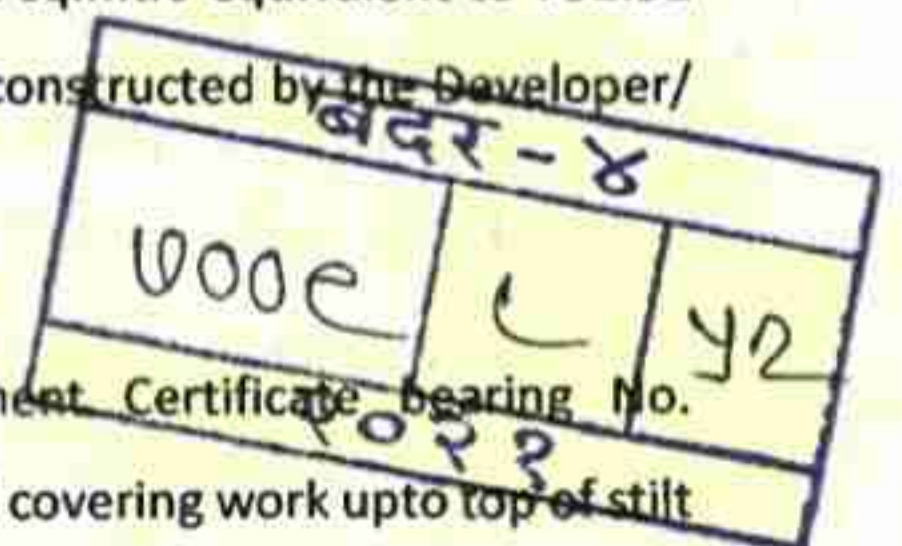 equivalent to
constructed by the Developer/
बदर - ४
७००९ ८ ५२
Certificate bearing No.
covering work upto top of stilt